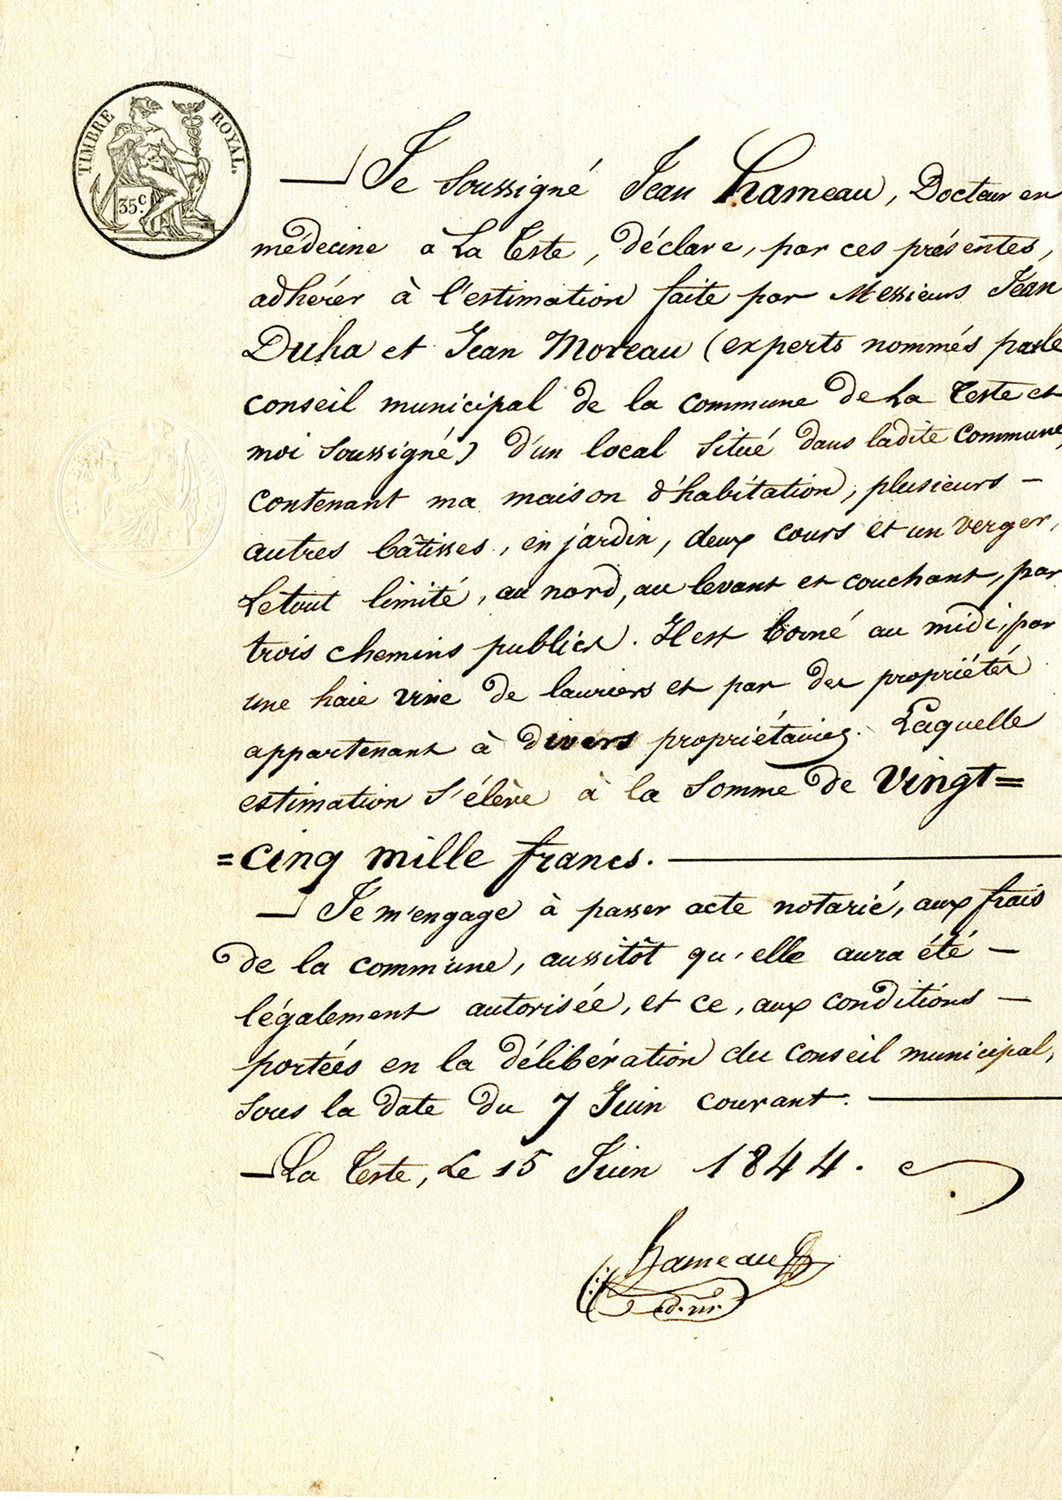 TIMBRE ROYAL.
35 C.
Je soussigné Jean Hameau, Docteur en
médecine à La Teste, déclare, par ces présentes,
adhérer à l'estimation faite par Messieurs Jean
Duha et Jean Moreau (experts nommés par le
conseil municipal de la commune de La Teste et
moi soussigné) d'un local situé dans ladite commune,
contenant ma maison d'habitation, plusieurs -
autres bâtisses, en jardin, deux cours et un verger,
Le tout limité, au nord, au levant et couchant, par
trois chemins publics. Il est borné au midi, par
une haie vive de lauriers et par des propriétés
appartenant à divers propriétaires. Laquelle
estimation s'élève à la somme de vingt=
=cinq mille francs.
Je m'engage à passer acte notarié, aux frais
de la commune, aussitôt qu'elle aura été -
légalement autorisée, et ce, aux conditions -
portées en la délibération du conseil municipal,
sous la date du 7 Juin courant.
La Teste, Le 15 Juin 1844.
hameau
d. m.